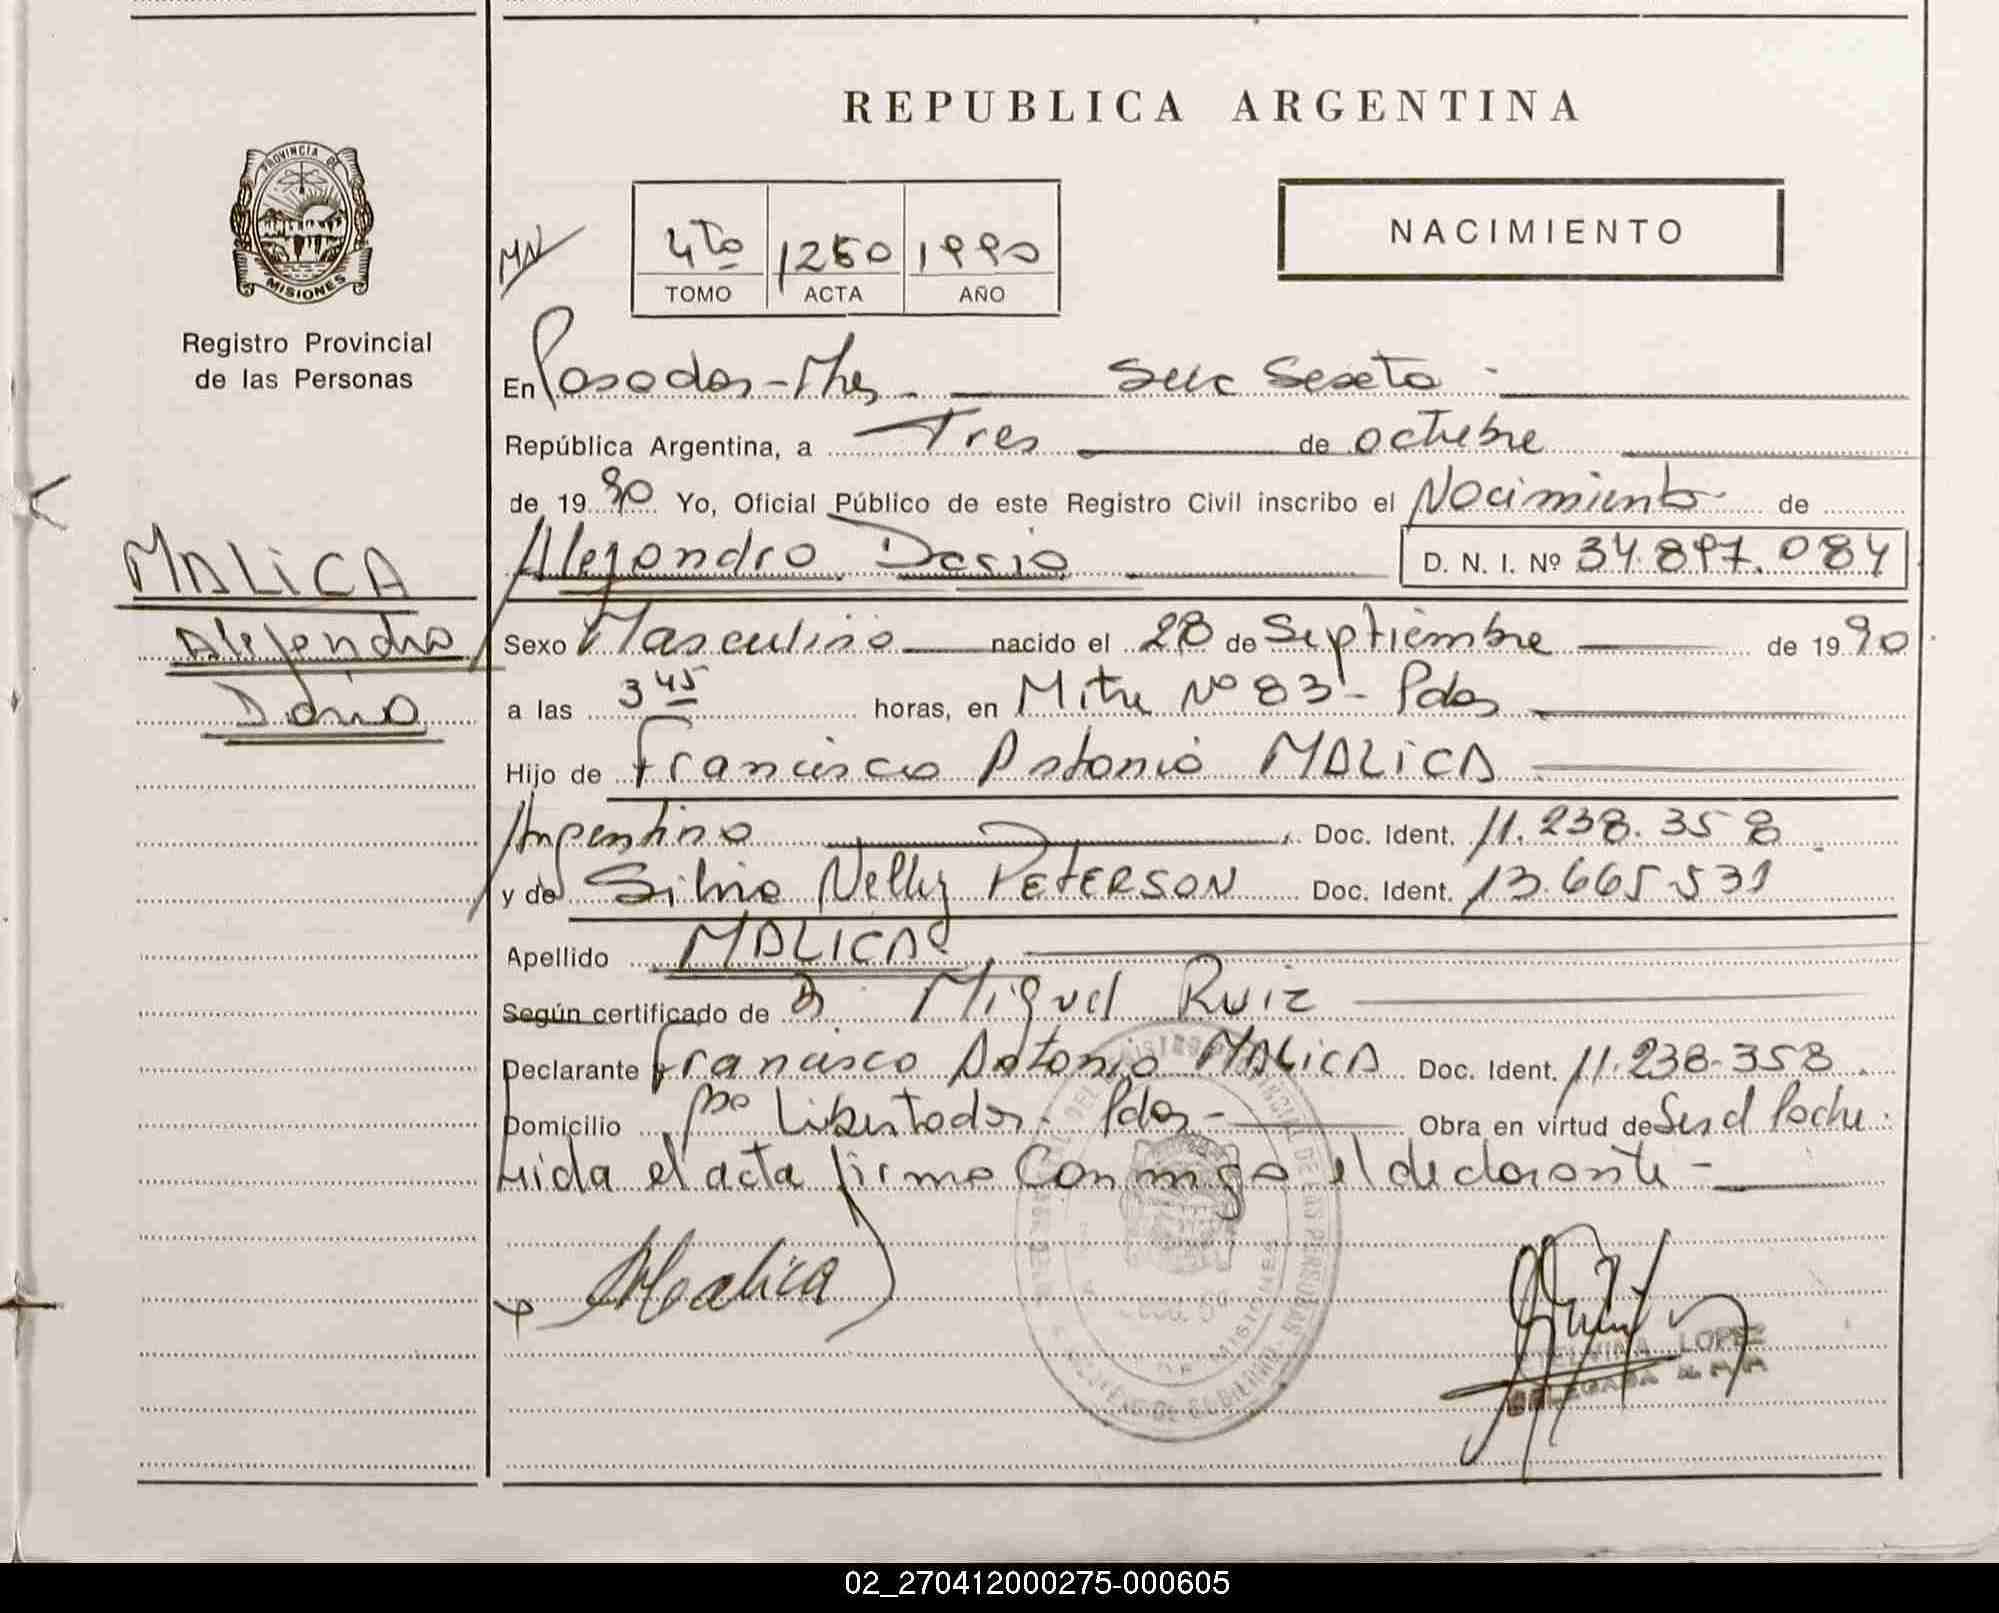 REPUBLICA ARGENTINA
PROVINCIA DE
MISIONES
Registro Provincial
de las Personas
4to 1250 1990
TOMO ACTA AÑO
NACIMIENTO
En Posadas - Mnes Secc Sexta
República Argentina, a Tres de octubre
de 1990 Yo, Oficial Público de este Registro Civil inscribo el Nacimiento de
Alejandro Dario D. N. I. Nº 34.897.084
MALICA
Alejandro
Dario
Sexo Masculino nacido el 28 de Septiembre de 1990
a las 3 45 horas, en Mitre Nº 83 - Pdas
Hijo de Francisco Antonio MALICA
Argentino Doc. Ident. 11.238.358
y de Silvia Nelly PETERSON Doc. Ident. 13.665.531
Apellido MALICA
Según certificado de D. Miguel Ruiz
Declarante Francisco Antonio MALICA Doc. Ident. 11.238.358
Domicilio Bo Libertador - Pdas - Obra en virtud de
Leida el acta firma conmigo el declarante -
Malica
LOPEZ
DELEGADA
02_270412000275-000605